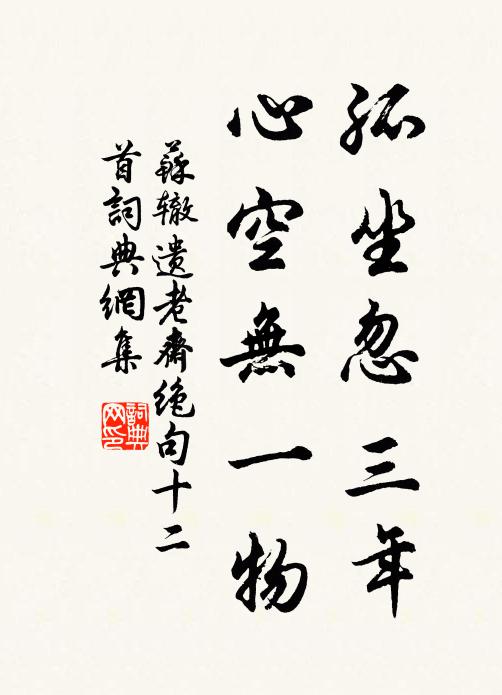 孤坐忽三年
心空無一物
蘇轍遺老齋绝句十二
首詞典網集
詞典
网印